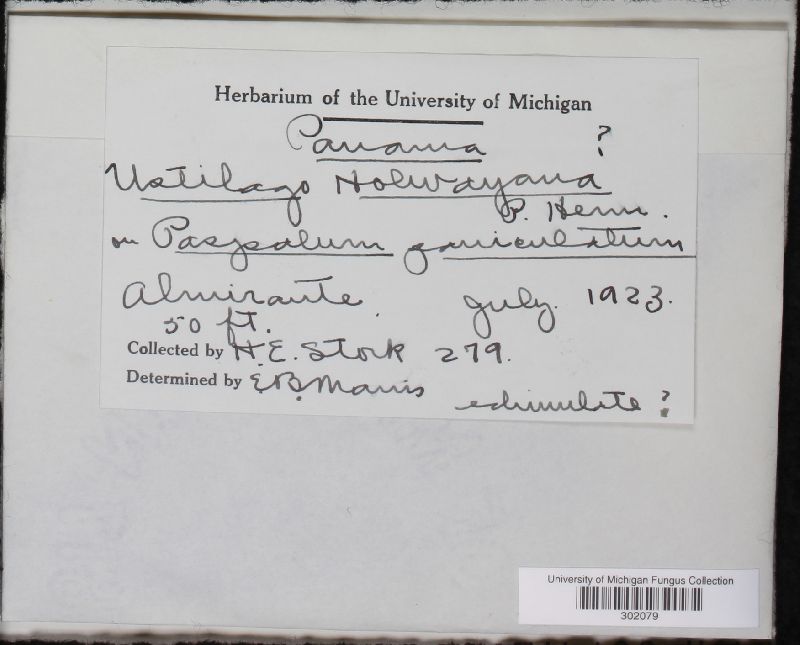 Herbarium of the University of Michigan
Panama ?
Ustilago Holwayana
P. Henn.
on Paspalum paniculatum
Almirante July 1923.
50 ft.
Collected by H.E. Stork 279.
Determined by E.B. Mains
echinulate ?
University of Michigan Fungus Collection
302079